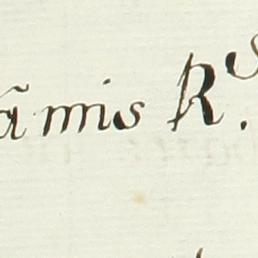 ãmis R.